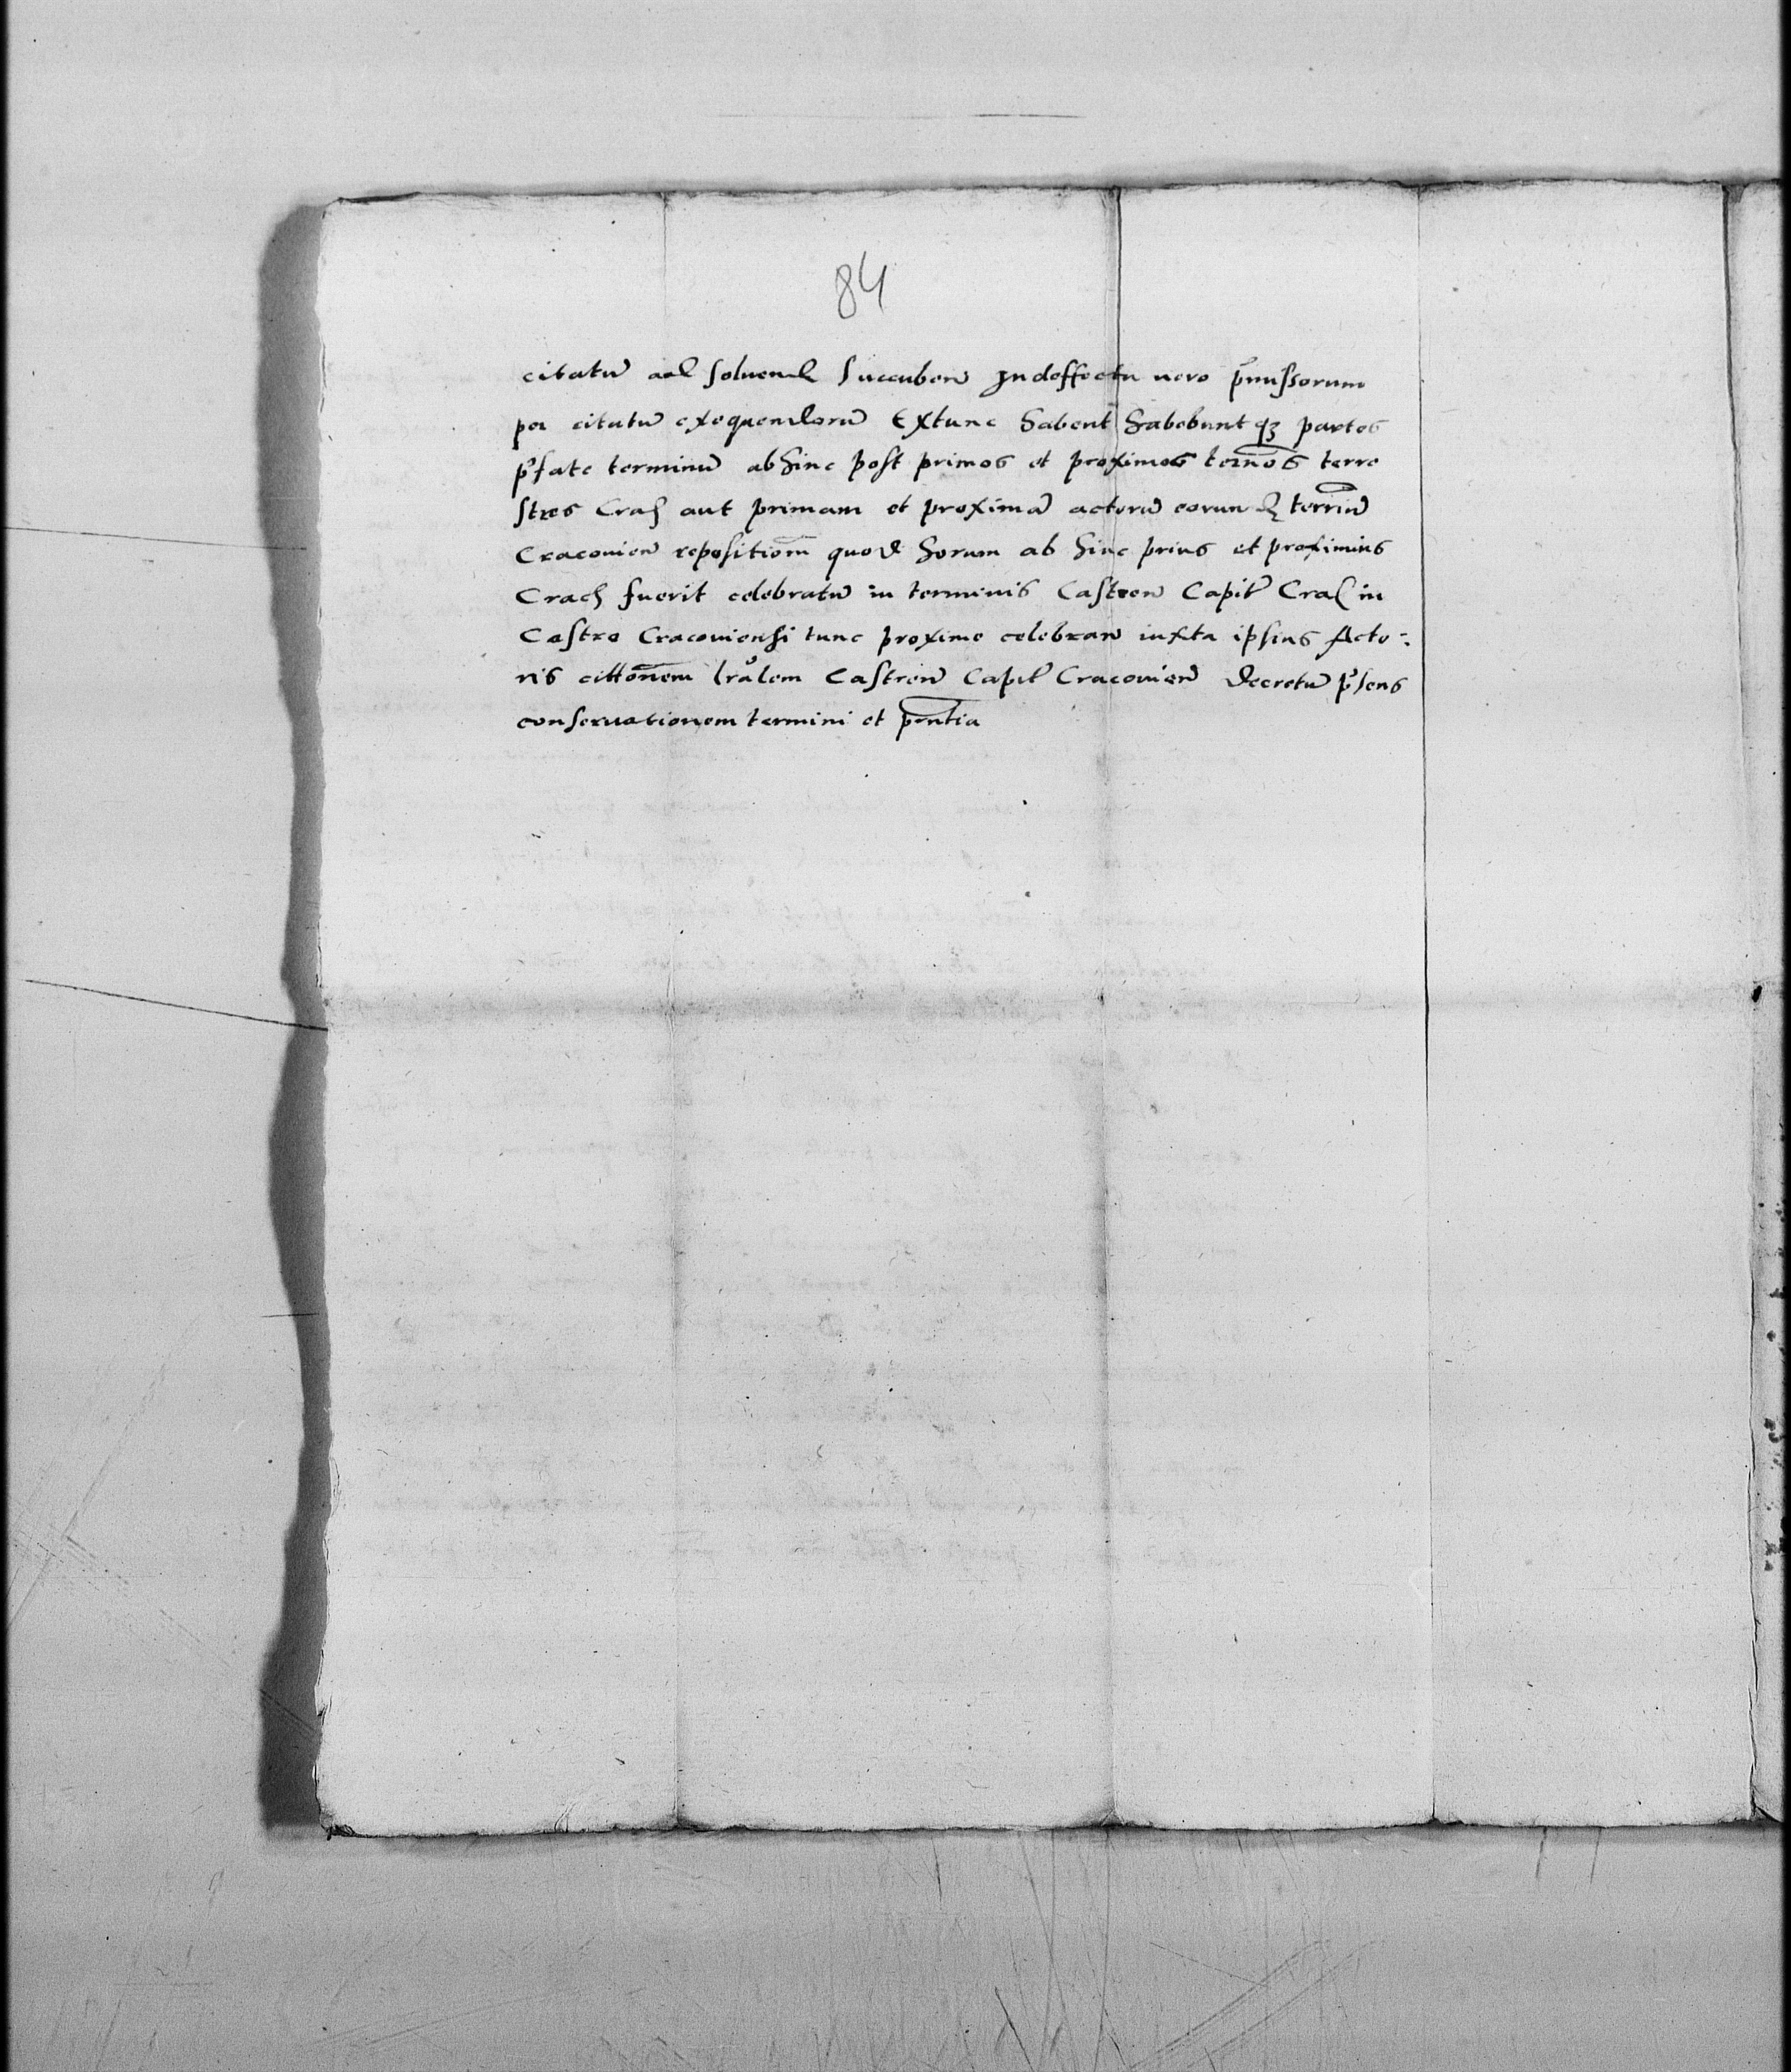 84
citatū ad soluend succubeñ Indeffectu vero p̄missorum
per citatū exequendorū Extunc habent habebuntqꝫ partes
p̄fate terminū abhinc post primos et proximos term̄os terre
stres Crac̄ aut primam et proximā actorū eorund terrn̄
Cracovieñ repositiōm quod horum ab hinc prius et proximius
Crac̄ fuerit celebratū in terminis Castreñ Capit̄ Crac̄ in
Castro Cracoviensi tunc proxime celebrañ iuxta ipsius Acto-
ris cittōnem lrālem Castreñ Capit̄ Cracovieñ decretū p̄sens
conservationem termini et p̄ntia